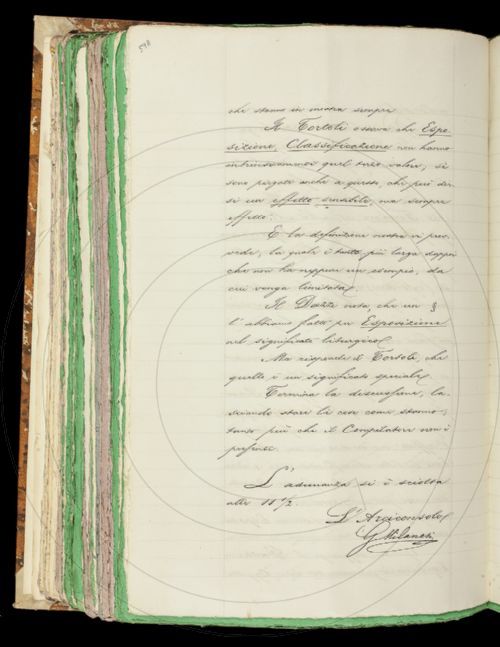 598
che stanno in mostra sempre.
Il Tortoli osserva che Espo-
sizione, Classificazione non hanno
intrinsecamente quel terzo valore, si
sono piegate anche a questo, che può dir-
si un effetto sensibile, ma sempre
effetto.
E la definizione nostra vi prov-
vede, la quale è tanto più larga dappoi
che non ha neppure un esempio, da
cui venga limitata.
Il Dazzi nota, che un §
l'abbiamo fatto per Esposizione
nel significato liturgico.
Ma risponde il Tortoli, che
quello è un significato speciale.
Termina la discussione, la-
sciando stare la cosa come stanno,
tanto più che il Compilatore non è
presente.
L'adunanza si è sciolta
alle 11 1/2.
L'Arciconsolo
G. Milanesi